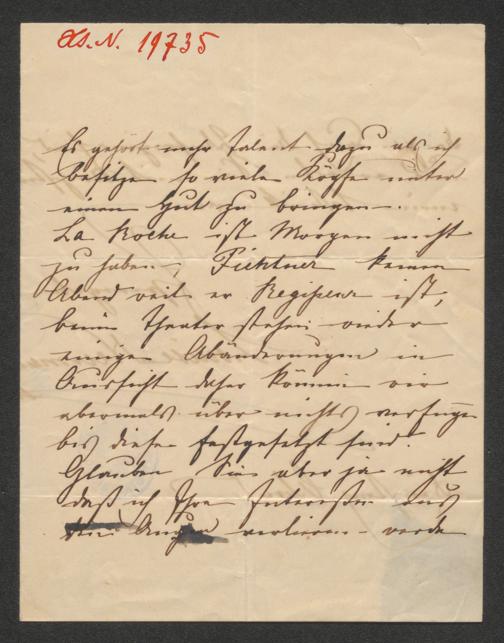 Hs. N. 19735
Es gehört mehr Talent dazu als ich
besitze so viele Köpfe unter
einen Hut zu bringen.
La Roche ist Morgen nicht
zu haben, Fichtner keinen
Abend weil er Regisseur ist,
beim Theater stehen wieder
einige Abänderungen in
Aussicht daher können wir
abermals über nichts verfügen
bis diese festgesetzt sind.
Glauben Sie aber ja nicht
daß ich Ihre Interessen aus
den Augen verlieren werde